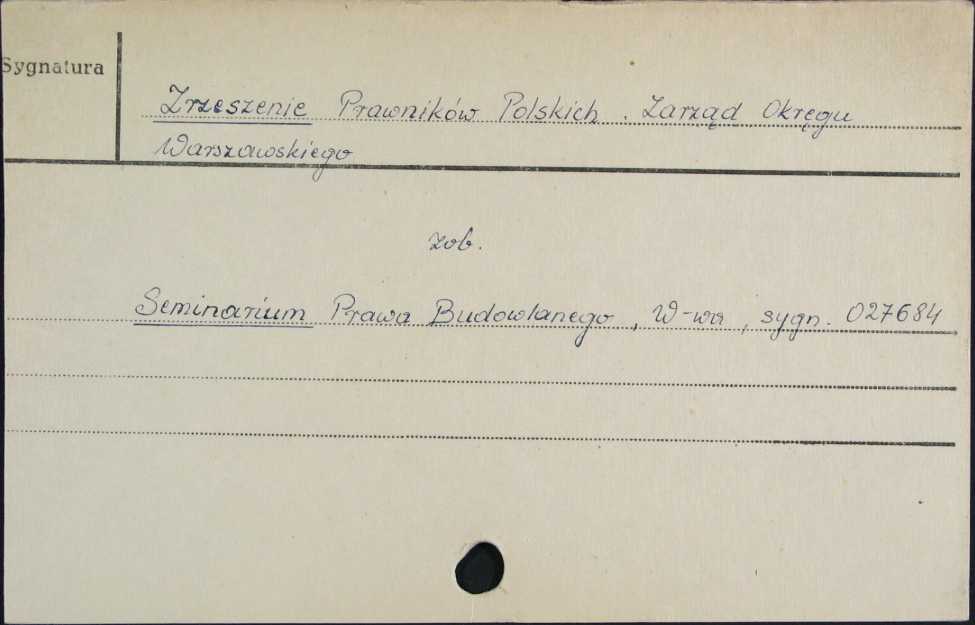 Sygnatura
Zrzeszenie Prawników Polskich. Zarząd Okręgu
Warszawskiego
zob.
Seminarium Prawa Budowlanego, W-wa, sygn. 027684